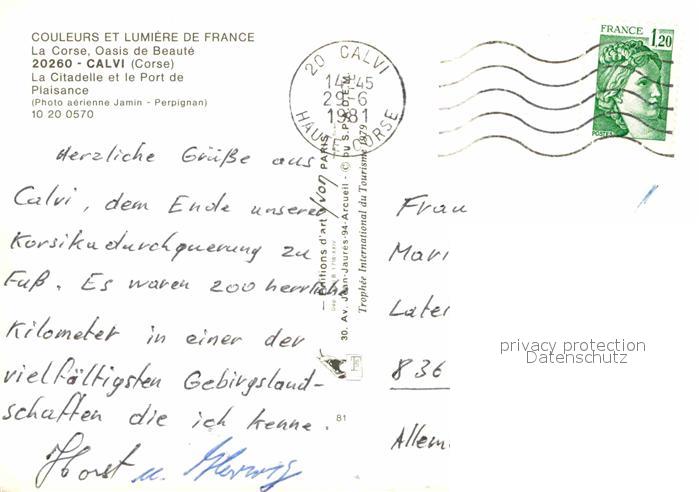 COULEURS ET LUMIÈRE DE FRANCE
La Corse, Oasis de Beauté
20260 - CALVI (Corse)
La Citadelle et le Port de
Plaisance
(Photo aérienne Jamin - Perpignan)
10 20 0570
20 CALVI
14H45
29-6
1981
HAUTE CORSE
FRANCE 1,20
POSTES
Herzliche Grüße aus
Calvi, dem Ende unserer
Korsikadurchquerung zu
Fuß. Es waren 200 herrliche
Kilometer in einer der
vielfältigsten Gebirgsland-
schaften die ich kenne.
Horst u. Herwig
81
Éditions d'art Yvon PARIS
30. Av. Jean-Jaurès-94-Arcueil - © by S.P.A.D.E.M.
Trophée International du Tourisme 1979
Frau
Mari
Later
836
Allem
privacy protection
Datenschutz